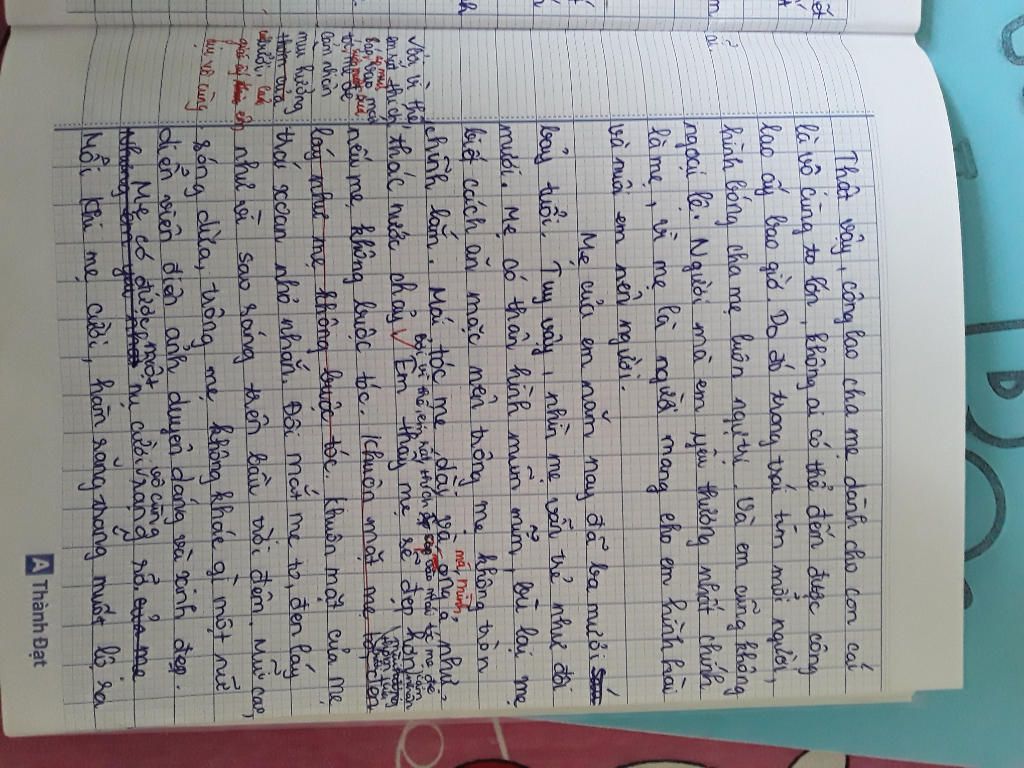 Thật vậy, công lao cha mẹ dành cho con cái
là vô cùng to lớn, không ai có thể đếm được công
lao ấy bao giờ. Do đó trong trái tim mỗi người,
hình bóng cha mẹ luôn ngự trị. Và em cũng không
ngoại lệ. Người mà em yêu thương nhất chính
là mẹ, vì mẹ là người mang cho em hình hài
và nuôi em nên người.
Mẹ của em năm nay đã ba mươi
bảy tuổi. Tuy vậy, nhìn mẹ vẫn trẻ như đôi
mươi. Mẹ có thân hình mũm mĩm, bù lại mẹ
biết cách ăn mặc nên trông mẹ không tròn
mà, mình,
chĩnh lắm. Mái tóc mẹ dầy và óng ả như
bởi vì thế em rất thích
thác nước chảy Em thấy mẹ sẽ đẹp hơn
nếu mẹ không buộc tóc. Khuôn mặt mẹ
láy như mẹ không buộc tóc. Khuôn mặt của mẹ
trái xoan nhỏ nhắn. Đôi mắt mẹ to, đen láy
như vì sao sáng trên bầu trời đêm. Mũi cao,
sống dừa, trông mẹ không khác gì một nữ
diễn viên điện ảnh duyên dáng và xinh đẹp.
vô cùng
Mẹ có được một nụ cười rạng rỡ.
Mỗi khi mẹ cười, hàm răng trắng muốt lộ ra
Bởi vì thế,
em rất thích
mùi hương
vô cùng
A Thành Đạt